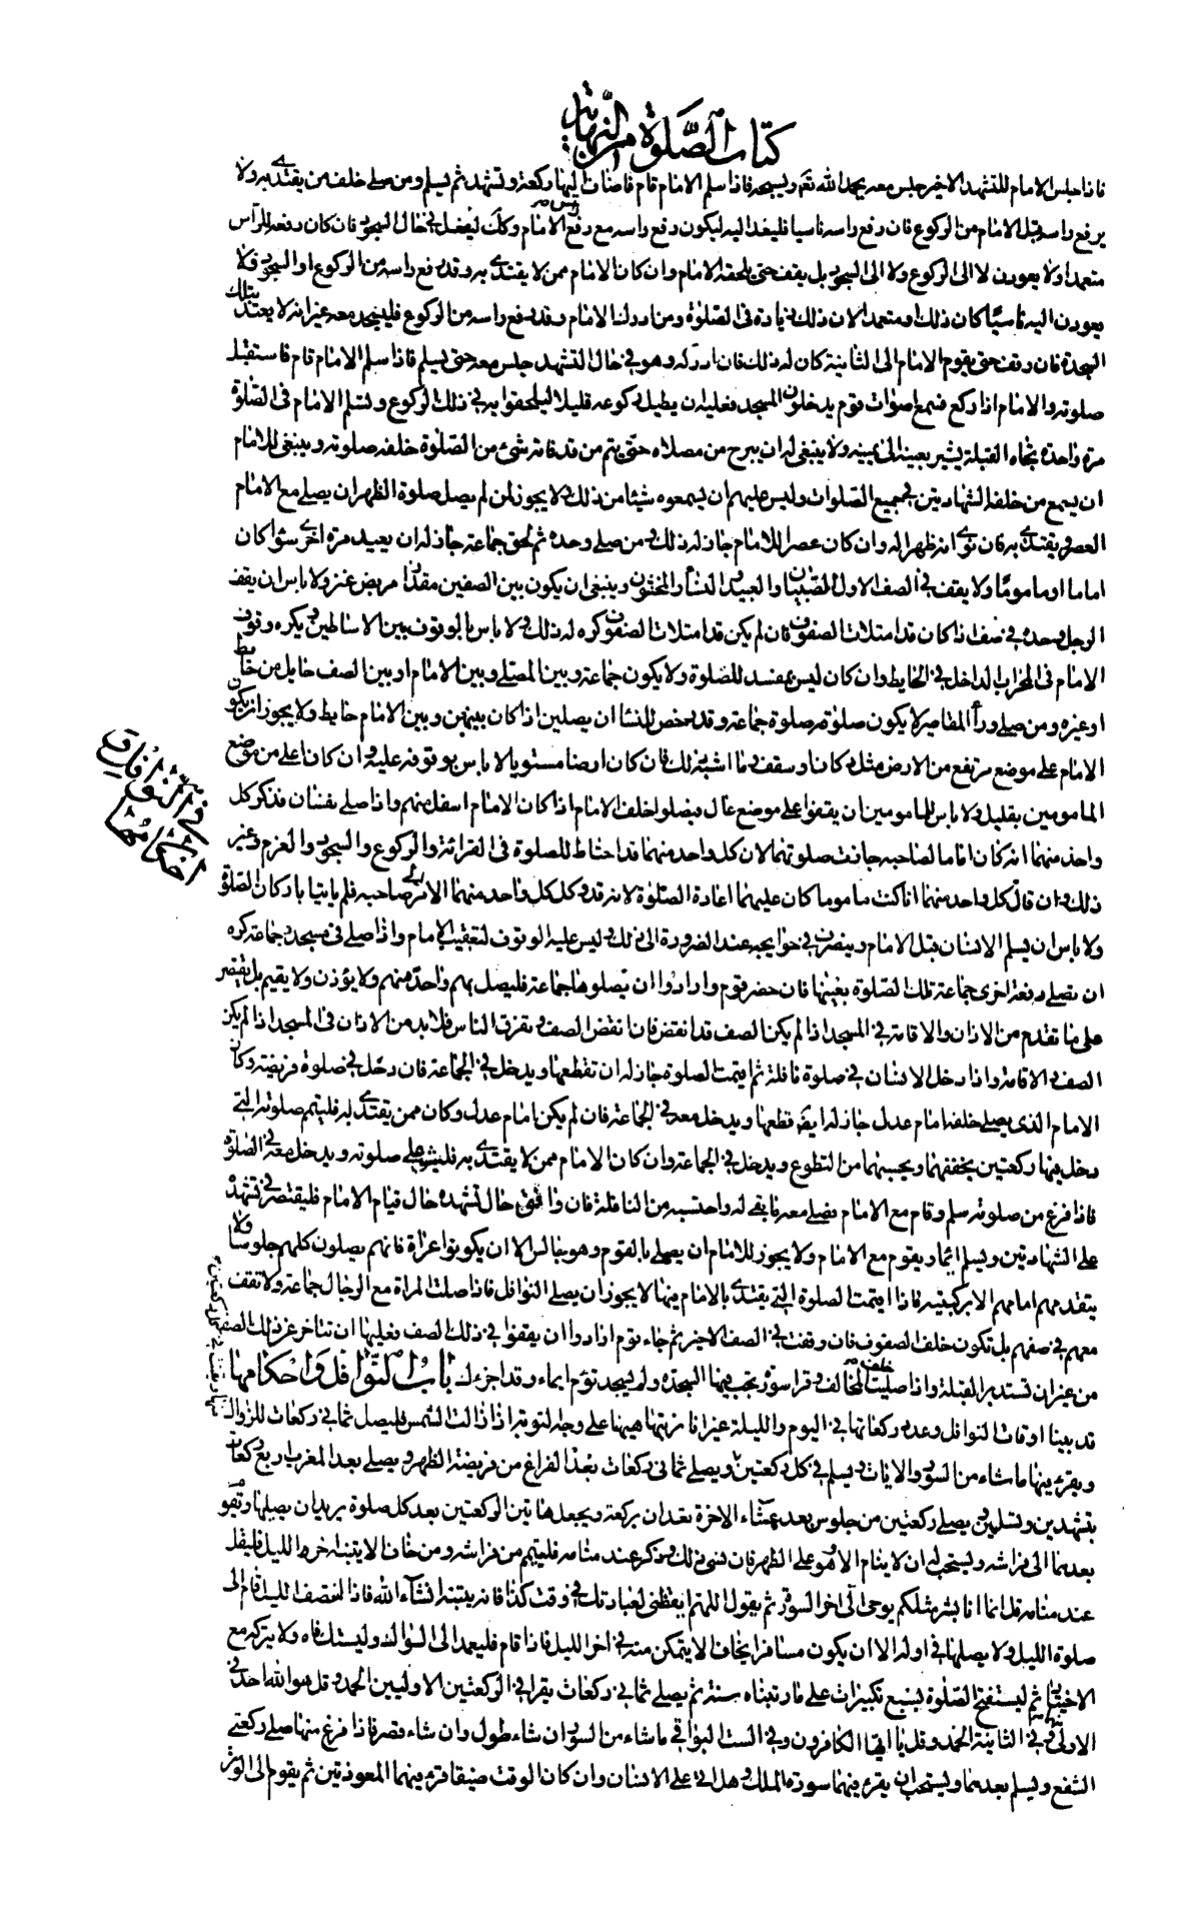 كتاب الصّلوة من النهاية
فاذا جلس الامام للتشهد الاخير جلس معه يحمد الله تعم ويسبحه فاذا سلم الامام قام فاضاف اليها ركعة وتشهد ثم يسلم ومن صلى خلف من يقتدى به ولا
يرفع راسه قبل الامام من الركوع فان رفع راسه ناسيا فليعد اليه ليكون رفع راسه مع رفع الامام وكك ليفعل في حال السجود فان كان رفعه للرأس
متعمدا ولا يعودن لا الى الركوع ولا الى السجود بل يقف حتى يلحقه الامام وان كان الامام ممن لا يقتدى به وقد رفع راسه من الركوع او السجود فلا
يعودن اليه ناسيًا كان ذلك او متعمدا لان ذلك زيادة في الصّلوة ومن ادرك الامام وقد رفع راسه من الركوع فليسجد معه غير انه لا يعتد بتلك
السجدة فان وقف حتى يقوم الامام الى الثانية كان له ذلك فان ادركه وهو في حال التشهد جلس معه حتى يسلم فاذا سلم الامام قام فاستقبل
صلوته والامام اذا ركع فسمع اصوات قوم يدخلون المسجد فعليه ان يطيل ركوعه قليلا ليلحقوا به في ذلك الركوع وتسلم الامام في الصّلوة
مرة واحدة تجاه القبلة يشير بعينه الى يمينه ولا ينبغي له ان يبرح من مصلاه حتى يتم من قد فاته شئ من الصّلوة خلفه صلوته وينبغي للامام
ان يسمع من خلفه الشهادتين في جميع الصّلوات وليس عليهم ان يسمعوه شيئا من ذلك ولا يجوز لمن لم يصل صلوة الظهر ان يصلي مع الامام
العصر ويقتدى به فان نوى انه ظهر له وان كان عصرا للامام جاز له ذلك ومن صلى وحده ثم لحق جماعة جاز له ان يعيد مرة اخرى سواء كان
اماما او مامومًا ولا يقف في الصف الاول الصّبيان والعبيد والنساء والمخنثون وينبغي ان يكون بين الصفين مقدار مربض عنز ولا باس ان يقف
الرجل وحده في صف اذا كان قد امتلات الصفوف فان لم يكن قد امتلات الصفوف كره له ذلك ولا باس بالوقوف بين الاساطين ويكره وقوف
الامام في المحراب الداخل في الحايط وان كان ليس بمفسد للصّلوة ولا يكون جماعة وبين المصلي وبين الامام او بين الصف حايل من حايط
او غيره ومن صلى وراء المقاصير لا يكون صلوته صلوة جماعة وقد رخص للنساء ان يصلين اذا كان بينهن وبين الامام حايط ولا يجوز ان يكون
الامام على موضع مرتفع من الارض مثل دكان او سقف وما اشبه ذلك فان كان ارضا مستويا لا باس بوقوفه عليه وان كان اعلى من موضع
المامومين بقليل ولا باس للمامومين ان يقفوا على موضع عال فيصلوا خلف الامام اذا كان الامام اسفل منهم واذا صلى نفسان فذكر كل
واحد منهما انه كان اماما لصاحبه جازت صلوتهما لان كل واحد منهما قد احتاط للصلوة في القرائة والركوع والسجود والعزم وغير
ذلك وان قال كل واحد منهما انا كنت ماموما كان عليهما اعادة الصّلوة لانه قد وكل كل واحد منهما الامر الى صاحبه فلم ياتيا باركان الصّلوة
ولا باس ان يسلم الانسان قبل الامام وينصرف في حوايجه عند الضرورة الى ذلك وليس عليه الوقوف لتعقيب الامام واذا صلى في مسجد جماعة كره
ان يصلى دفعة اخرى جماعة تلك الصّلوة بعينها فان حضر قوم وارادوا ان يصلوها جماعة فليصل بهم واحد منهم ولا يؤذن ولا يقيم بل يقتصر
على ما تقدم من الاذان والاقامة في المسجد اذا لم يكن الصف قد انفض فان انفض الصف وتفرق الناس فلا بد من الاذان في المسجد اذا لم يكن
الصف والاقامة واذا دخل الانسان في صلوة نافلة ثم اقيمت الصلوة جاز له ان تقطعها ويدخل في الجماعة فان دخل في صلوة فريضة وكان
الامام الذي يصلي خلفه امام عدل جاز له ايضم قطعها ويدخل معه في الجماعة فان لم يكن امام عدل وكان ممن يقتدى به فليتم صلوته التي
دخل فيها ركعتين يخففهما ويحسبهما من التطوع ويدخل في الجماعة وان كان الامام ممن لا يقتدى به فليبن على صلوته ويدخل معه في الصّلوة
فاذا فرغ من صلوته سلم وقام مع الامام يصلى معه ما بقى له واحتسبه من النافلة فان وافق حال تشهده حال قيام الامام فليقتصر في تشهده
على الشهادتين ويسلم ايماء ويقوم مع الامام ولا يجوز للامام ان يصلى بالقوم وهو جالس الا ان يكونوا عراة فانهم يصلون كلهم جلوسا ولا
يتقدمهم امامهم الا بركبتيه فاذا اقيمت الصلوة التي يقتدى بالامام فيها لا يجوز ان يصلى النوافل فاذا صلت المراة مع الرجال جماعة ولا تقف
معهم في صفهم بل تكون خلف الصفوف فان وقفت في الصف الاخير ثم جاء قوم ارادوا ان يقفوا في ذلك الصف فعليها ان تتاخر عن ذلك الصف
من غير ان تستدبر القبلة واذا صليت خلف مخالف وقرا سورة يجب فيها السجدة ولم يسجد تؤم ايماء وقد اجزءك باب النّوافل واحكامها
قد بينا اوقات النوافل وعدد ركعاتها في اليوم والليلة غير انا نرتبها هيهنا على وجه التوتير اذا زالت الشمس فليصل ثماني ركعات للزوال
ويقرء فيها ما شاء من السور والايات ويسلم في كل ركعتين ويصلي ثماني ركعات بعد الفراغ من فريضة الظهر ويصلي بعد المغرب اربع ركعات
بتشهدين وتسليمين ويصلى ركعتين من جلوس بعد عشاء الاخرة تعدان بركعة ويجعل هاتين الركعتين بعد كل صلوة يريد ان يصليها ويقوم
بعدهما الى فراشه ويستحب له ان لا ينام الا وهو على الطهر فان نسى ذلك وذكر عند منامه فليتيمم من فراشه ومن خاف الا ينتبه اخر الليل فليقل
عند منامه قل انما انا بشر مثلكم يوحى الى اخر السورة ثم يقول اللهم ايقظني لعبادتك في وقت كذا فانه ينتبه انشاء الله فاذا انتصف الليل قام الى
صلوة الليل ولا يصليها في اوله الا ان يكون مسافرا يخاف الا يتمكن منه في اخر الليل فاذا قام فليعمد الى السواك وليستك فاه ولا يتركه مع
الاختيار ثم ليستفتح الصّلوة بسبع تكبيرات على ما رتبناه سنة ثم يصلي ثماني ركعات يقرا في الركعتين الاوليين الحمد وقل هو الله احد في
الاولى وفي الثانية الحمد وقل يا ايها الكافرون وفي الست البواقي ما شاء من السور ان شاء طول وان شاء قصر فاذا فرغ منها صلى ركعتي
الشفع ويسلم بعدهما ويستحب ان يقرء فيهما سورة الملك وهل اتى على الانسان وان كان الوقت ضيقا قرء فيهما المعوذتين ثم يقوم الى الوتر
في النوافل
احكامها